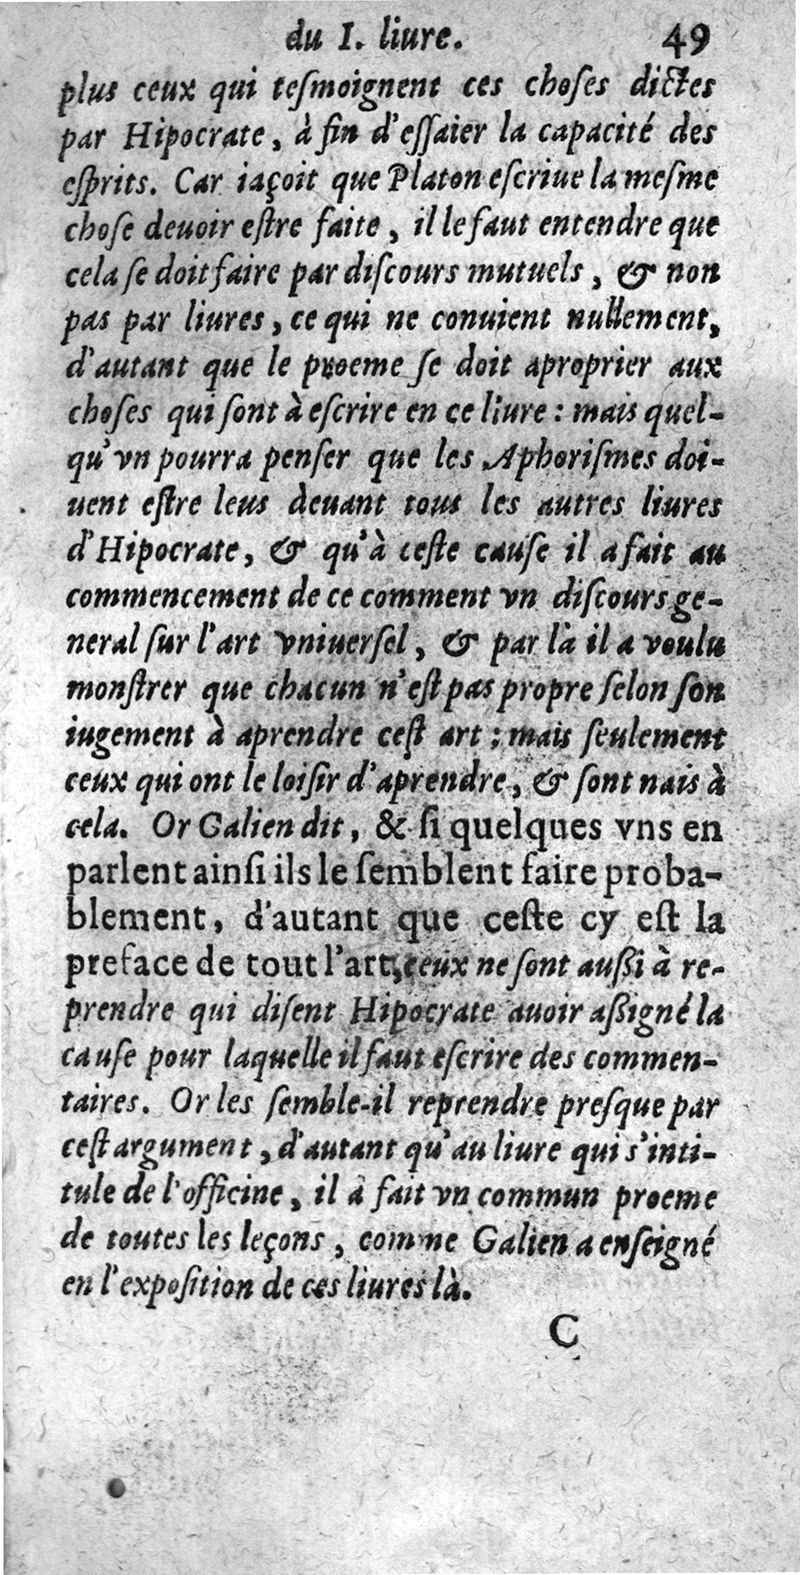 du I. liure. 49
plus ceux qui teſmoignent ces choſes dictes
par Hipocrate, à fin d'eſſaier la capacité des
eſprits. Car iaçoit que Platon eſcriue la meſme
choſe deuoir eſtre faite, il le faut entendre que
cela ſe doit faire par diſcours mutuels, & non
pas par liures, ce qui ne conuient nullement,
d'autant que le proeme ſe doit aproprier aux
choſes qui ſont à eſcrire en ce liure : mais quel-
qu'vn pourra penſer que les Aphoriſmes doi-
uent eſtre leus deuant tous les autres liures
d'Hipocrate, & qu'à ceſte cauſe il a fait au
commencement de ce comment vn diſcours ge-
neral ſur l'art vniuerſel, & par là il a voulu
monſtrer que chacun n'eſt pas propre ſelon ſon
iugement à aprendre ceſt art : mais ſeulement
ceux qui ont le loiſir d'aprendre, & ſont nais à
cela. Or Galien dit, & ſi quelques vns en
parlent ainſi ils le ſemblent faire proba-
blement, d'autant que ceſte cy eſt la
preface de tout l'art, ceux ne ſont auſſi à re-
prendre qui diſent Hipocrate auoir aſſigné la
cauſe pour laquelle il faut eſcrire des commen-
taires. Or les ſemble-il reprendre preſque par
ceſt argument, d'autant qu'au liure qui s'inti-
tule de l'officine, il a fait vn commun proeme
de toutes les leçons, comme Galien a enſeigné
en l'expoſition de ces liures là.
C